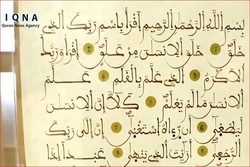 IQNA
Quran News Agency
بِسْمِ اللَّهِ الرَّحْمَنِ الرَّحِيمِ اقْرَأْ بِاسْمِ رَبِّكَ الَّذِي
خَلَقَ خَلَقَ الْإِنسَٰنَ مِنْ عَلَقٍ اقْرَأْ وَرَبُّكَ
الْأَكْرَمُ الَّذِي عَلَّمَ بِالْقَلَمِ عَلَّمَ
الْإِنسَٰنَ مَا لَمْ يَعْلَمْ كَلَّا إِنَّ الْإِنسَٰنَ
لَيَطْغَىٰ أَن رَّءَاهُ اسْتَغْنَىٰ إِنَّ إِلَىٰ رَبِّكَ
الرُّجْعَىٰ أَرَءَيْتَ الَّذِي يَنْهَىٰ عَبْدًا إِذَا